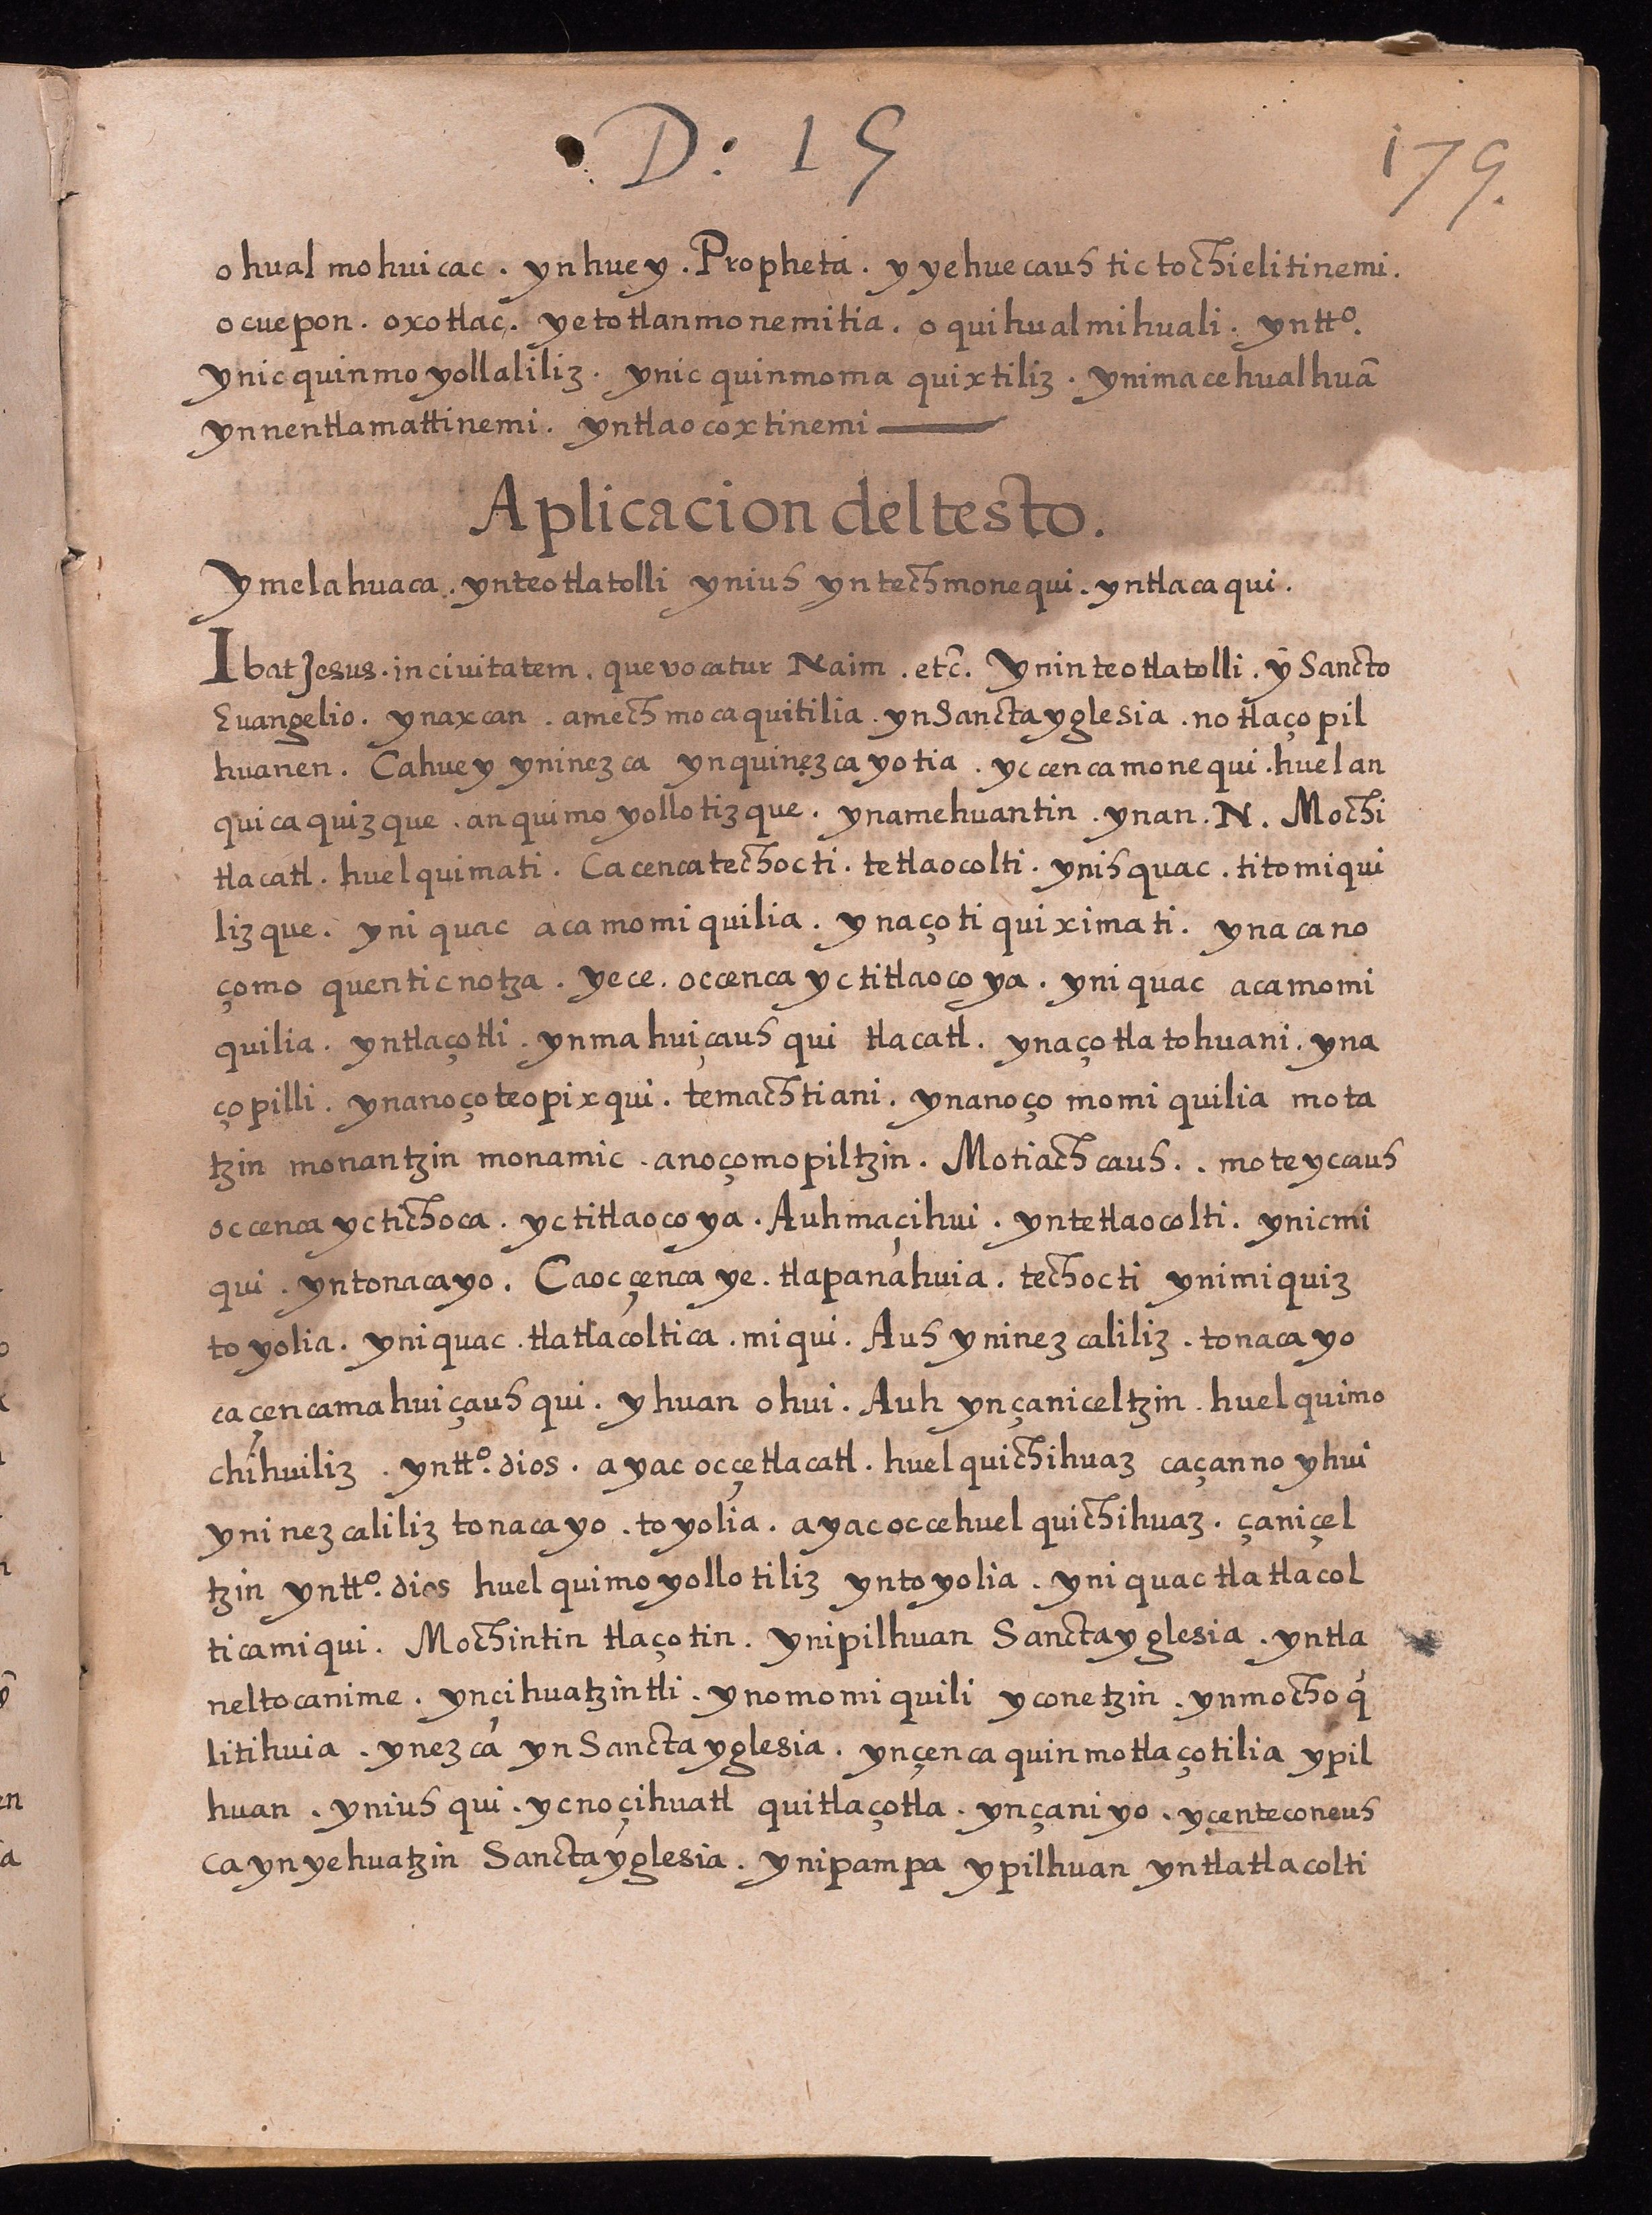 D: 15
179.
ohual mohuicac. ynhuey. Propheta. yyehuecauh tictochielitinemi.
ocuepon. oxotlac. yetotlanmonemitia. oquihualmihuali. yntto.
ynicquinmoyollaliliz. ynic quinmoma quixtiliz. ynimacehualhuã
ynnentlamattinemi. yntlaocoxtinemi
Aplicacion deltesto.
Ymelahuaca. ynteotlatolli yniuh yntechmonequi. yntlacaqui.
Ibat Jesus. inciuitatem. quevocatur Naim. etc̃. Ynin teotlatolli. ỹ Sancto
Euangelio. ynaxcan. amechmocaquitilia. ynSanctayglesia. notlaçopil
huanen. Cahuey yninezca ynquinezcayotia. yccencamonequi. huelan
quicaquizque. anquimoyollotizque. ynamehuantin. ynan. N. Mochi
tlacatl. huelquimati. Cacencatechocti. tetlaocolti. ynihquac. titomiqui
lizque. yniquac acamomiquilia. ynaçotiquiximati. ynacano
çomo quenticnotza. yece. occenca yctitlaocoya. yniquac acamomi
quilia. yntlaçotli. ynmahuiçauhqui tlacatl. ynaçotlatohuani. yna
çopilli. ynanoçoteopixqui. temachtiani. ynanoço momiquilia mota
tzin monantzin monamic. anoçomopiltzin. Motiachcauh.. moteyccauh
occenca yctichoca. yctitlaocoya. Auhmaçihui. yntetlaocolti. ynicmi
qui. yntonacayo. Caocçenca ye. tlapanahuia. techocti ynimiquiz
toyolia. yniquac. tlatlacoltica. miqui. Auh yninezcaliliz. tonacayo
caçencamahuiçauhqui. yhuan ohui. Auh ynçaniceltzin. huelquimo
chihuiliz. yntto. dios. ayac occçetlacatl. huelquichihuaz caçannoyhui
yninezcaliliz tonacayo. toyolia. ayacoccehuel quichihuaz. çaniçel
tzin yntto. dios huelquimoyollotiliz yntoyolia. yniquac tlatlacol
ticamiqui. Mochintin tlaçotin. ynipilhuan Sanctayglesia. yntla
neltocanime. ynçihuatzintli. ynomomiquili yconetzin. ynmochoq́
litihuia. ynezca ynSanctayglesia. ynçenca quinmotlaçotilia ypil
huan. yniuhqui. ycnoçihuatl quitlaçotla. ynçaniyo. ycenteconeuh
caynyehuatzin Sanctayglesia. ynipampa ypilhuan yntlatlacolti